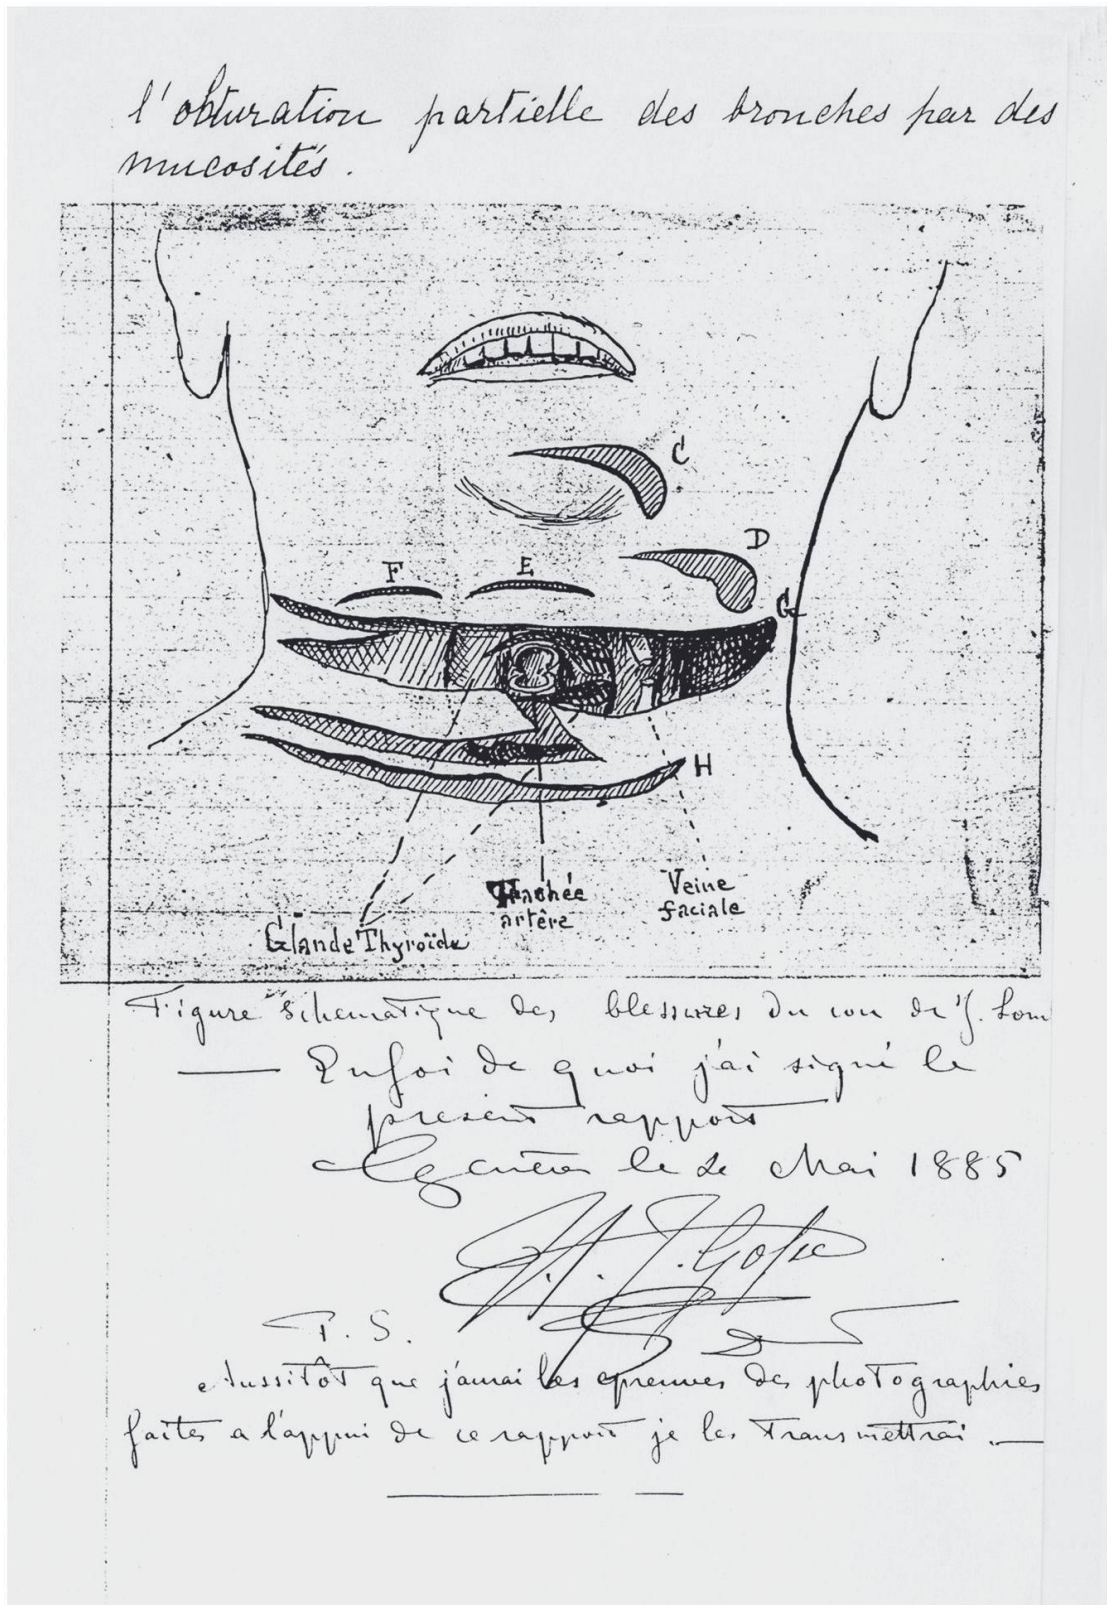 l'obturation partielle des bronches par des
mucosités.
C
D
F E
G
H
Trachée
artère
Veine
faciale
Glande Thyroïde
Figure schematique des blessures du cou de J. Lom
Enfoi de quoi j'ai signé le
present rapport
le 2 Mai 1885
P. S.
Aussitôt que j'aurai les epreuves des photographies
faites a l'appui de ce rapport je les transmettrai.